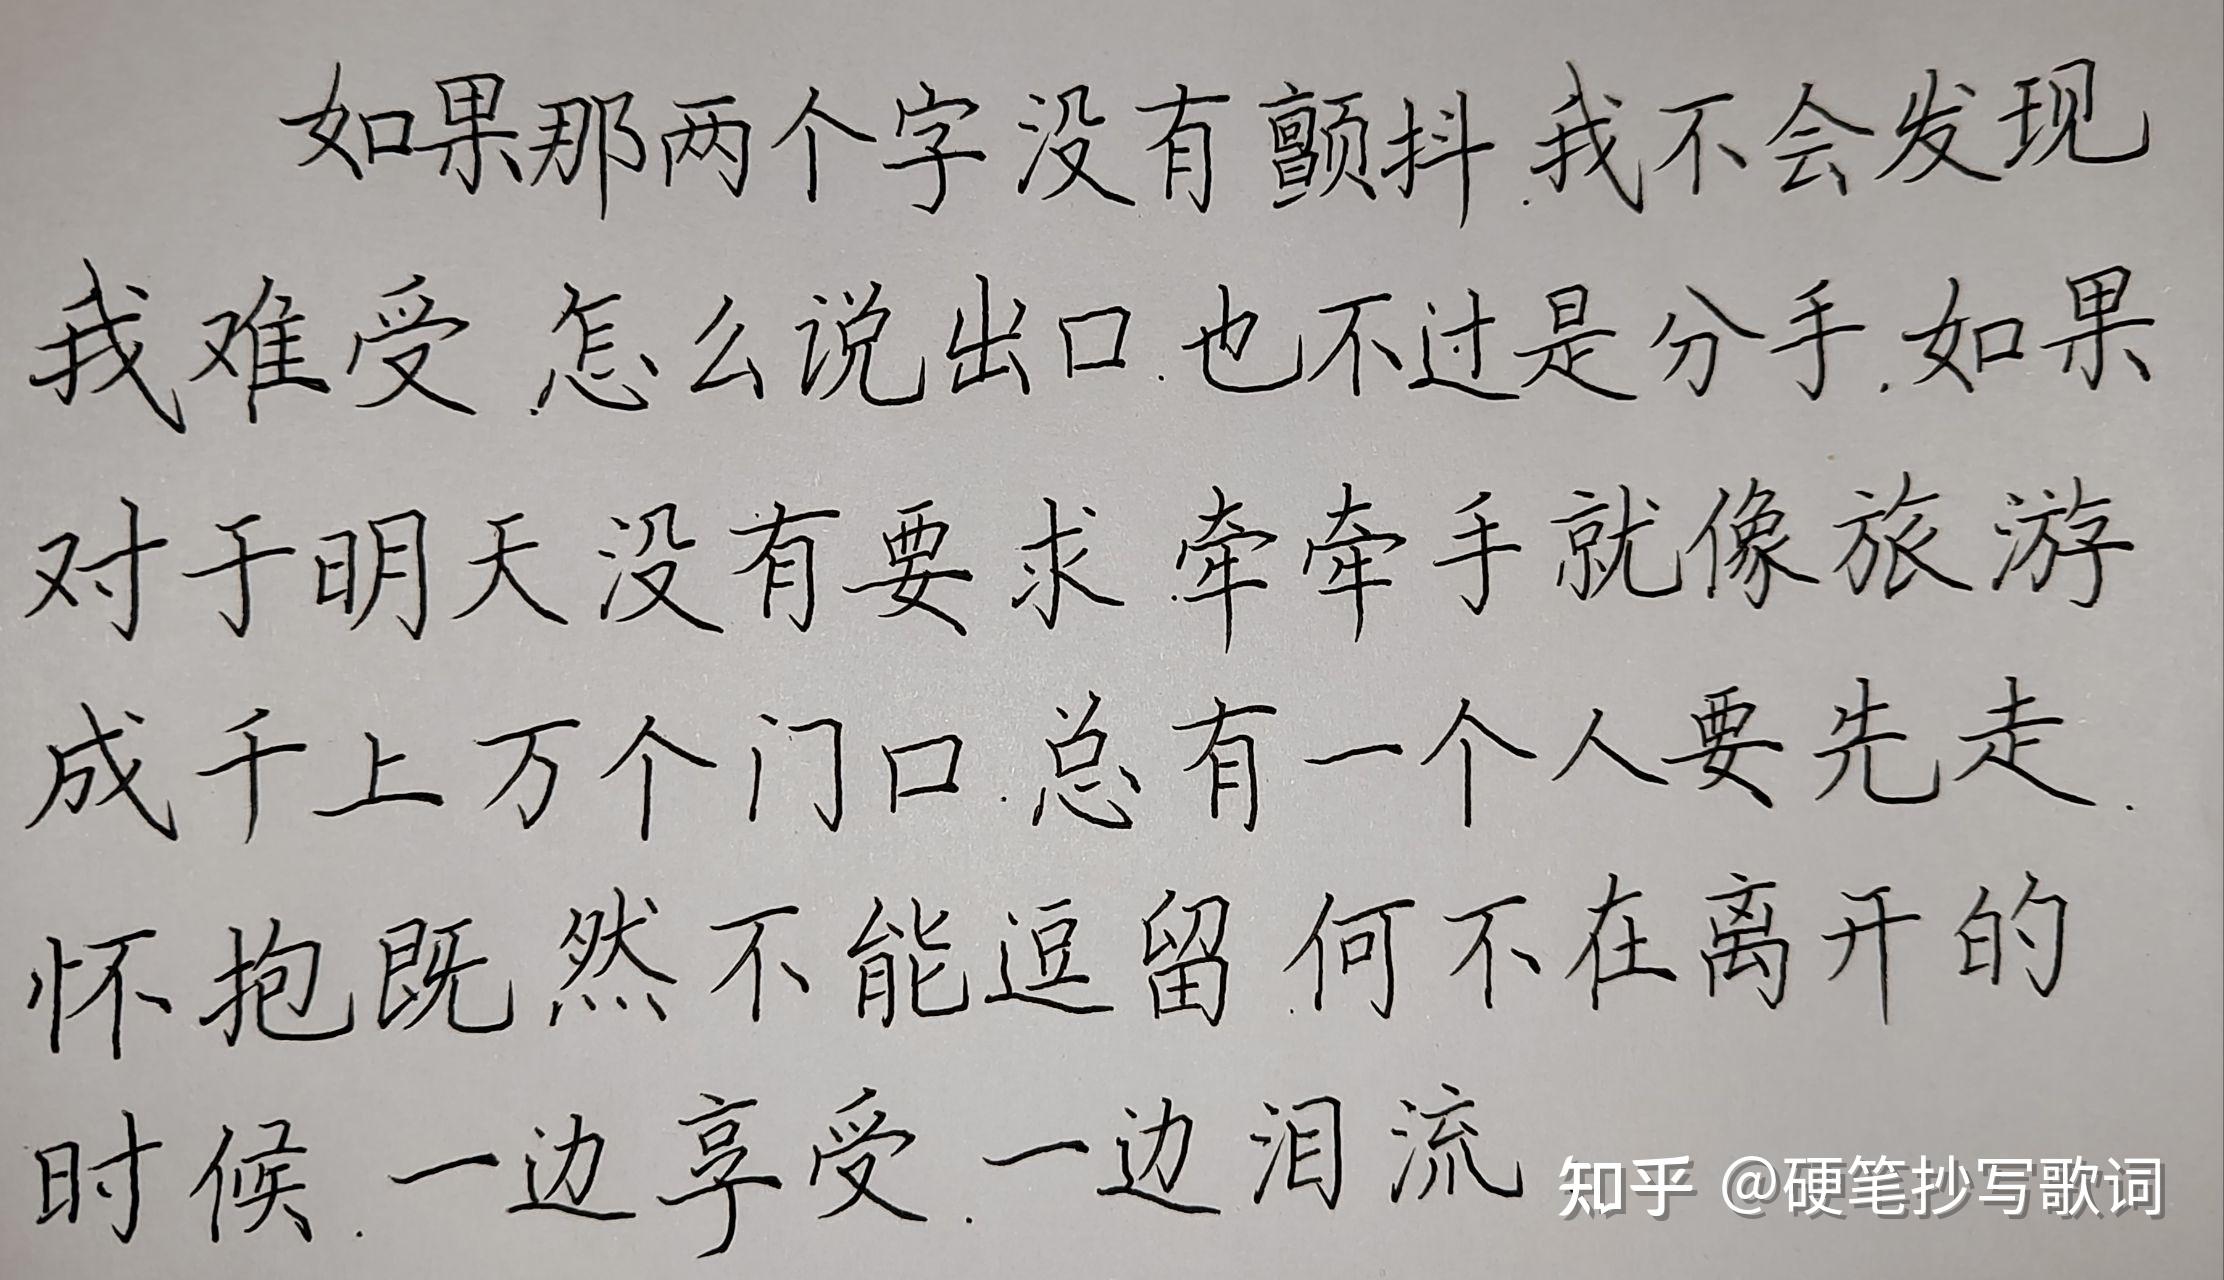 如果那两个字没有颤抖.我不会发现
我难受.怎么说出口.也不过是分手.如果
对于明天没有要求.牵牵手就像旅游
成千上万个门口.总有一个人要先走.
怀抱既然不能逗留.何不在离开的
时候.一边享受.一边泪流
知乎 @硬笔抄写歌词